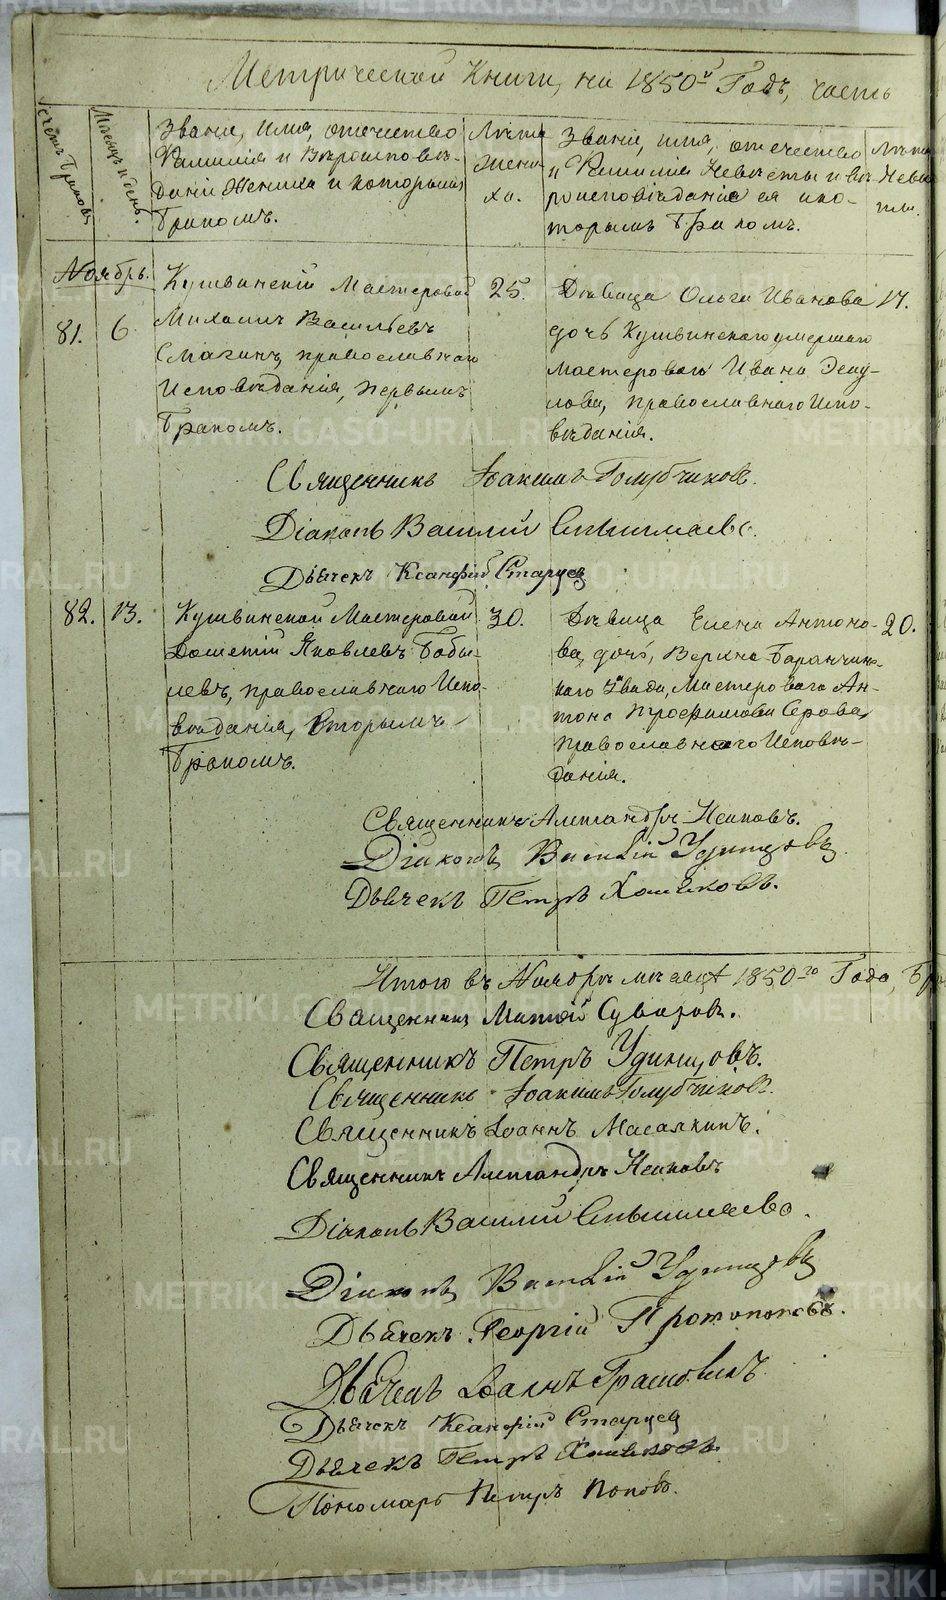 Метрической Книги, на 1850й Годъ, часть
Счетъ Браковъ
Мѣсяцъ и день.
Званіе, имя, отечество
Фамилія и Вѣроисповѣ-
даніе Жениха и которымъ
Бракомъ.
Лѣта
Жени
ха.
Званіе, имя, отечество
и Фамилія Невѣсты и вѣ
роисповѣданіе ея и ко-
торымъ Бракомъ.
Лѣта
Невѣ
сты.
Ноябрь.
81. 6
Кушвинскій Мастеровой
Михаилъ Васильевъ
Смагинъ, православнаго
Исповѣданія, первымъ
Бракомъ.
25.
Дѣвица Ольга Иванова
дочь Кушвинскаго умершаго
мастероваго Ивана
православнаго Испо-
вѣданія.
17.
Священникъ Іоакимъ Голубчиковъ.
Діаконъ Василій
Дьячекъ Ксанфій Старцевъ
82. 13.
Кушвинской Мастеровой
Яковлевъ Бабы-
левъ, православнаго Испо-
вѣданія, Вторымъ
Бракомъ.
30.
Дѣвица Елена Антоно-
ва, дочь, Верхне-Баранчинс-
каго Завода, Мастероваго Ан-
тона Трофимова Серова,
православнаго Исповѣ-
данія.
20.
Священникъ Александръ
Діаконъ Василій Удинцовъ
Дьячекъ Петръ Хомяковъ.
Итого въ Ноябрѣ мѣсяцѣ 1850го Года, Бра
Священникъ Матѳій Суворовъ.
Священникъ Петръ Удинцовъ.
Священникъ Іоакимъ Голубчиковъ.
Священникъ Іоаннъ Масалкинъ.
Священникъ Александръ
Діаконъ Василій
Діаконъ Василій Удинцовъ
Дьячекъ Георгій Протопоповъ.
Дьячекъ Іоаннъ
Дьячекъ Ксанфій Старцевъ
Дьячекъ Петръ Хомяковъ.
Пономарь Петръ Поповъ.
METRIKI.GASO-URAL.RU